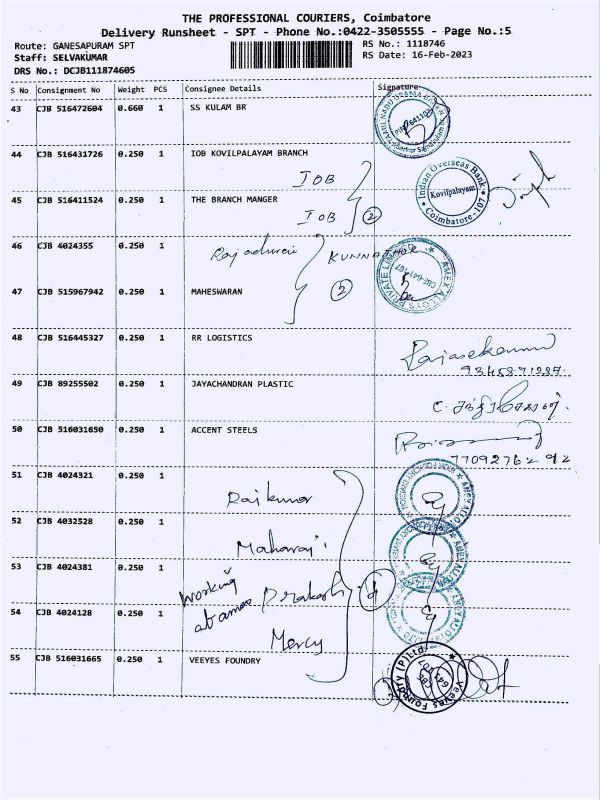 THE PROFESSIONAL COURIERS, Coimbatore
Delivery Runsheet - SPT - Phone No.:0422-3505555 - Page No.:5
Route: GANESAPURAM SPT
Staff: SELVAKUMAR
DRS No.: DCJB111874605
RS No.: 1118746
RS Date: 16-Feb-2023
S No Consignment No Weight PCS Consignee Details Signature
43 CJB 516472604 0.660 1 SS KULAM BR
44 CJB 516431726 0.250 1 IOB KOVILPALAYAM BRANCH
IOB
Indian Overseas Bank
Kovilpalayam
Coimbatore-107
45 CJB 516411524 0.250 1 THE BRANCH MANGER
IOB 2
46 CJB 4024355 0.250 1
KUNNATHUR
AMEX ALLOYS PRIVATE LIMITED
CBE-641 107
47 CJB 515967942 0.250 1 MAHESWARAN
2
48 CJB 516445327 0.250 1 RR LOGISTICS
Rajasekaran
49 CJB 89255502 0.250 1 JAYACHANDRAN PLASTIC
50 CJB 516031650 0.250 1 ACCENT STEELS
51 CJB 4024321 0.250 1
Rajkumar
52 CJB 4032528 0.250 1
Maharaji
53 CJB 4024381 0.250 1
working
Prakash
54 CJB 4024128 0.250 1
Mercy
55 CJB 516031665 0.250 1 VEEYES FOUNDRY
Veeyes Foundry (P) Ltd.